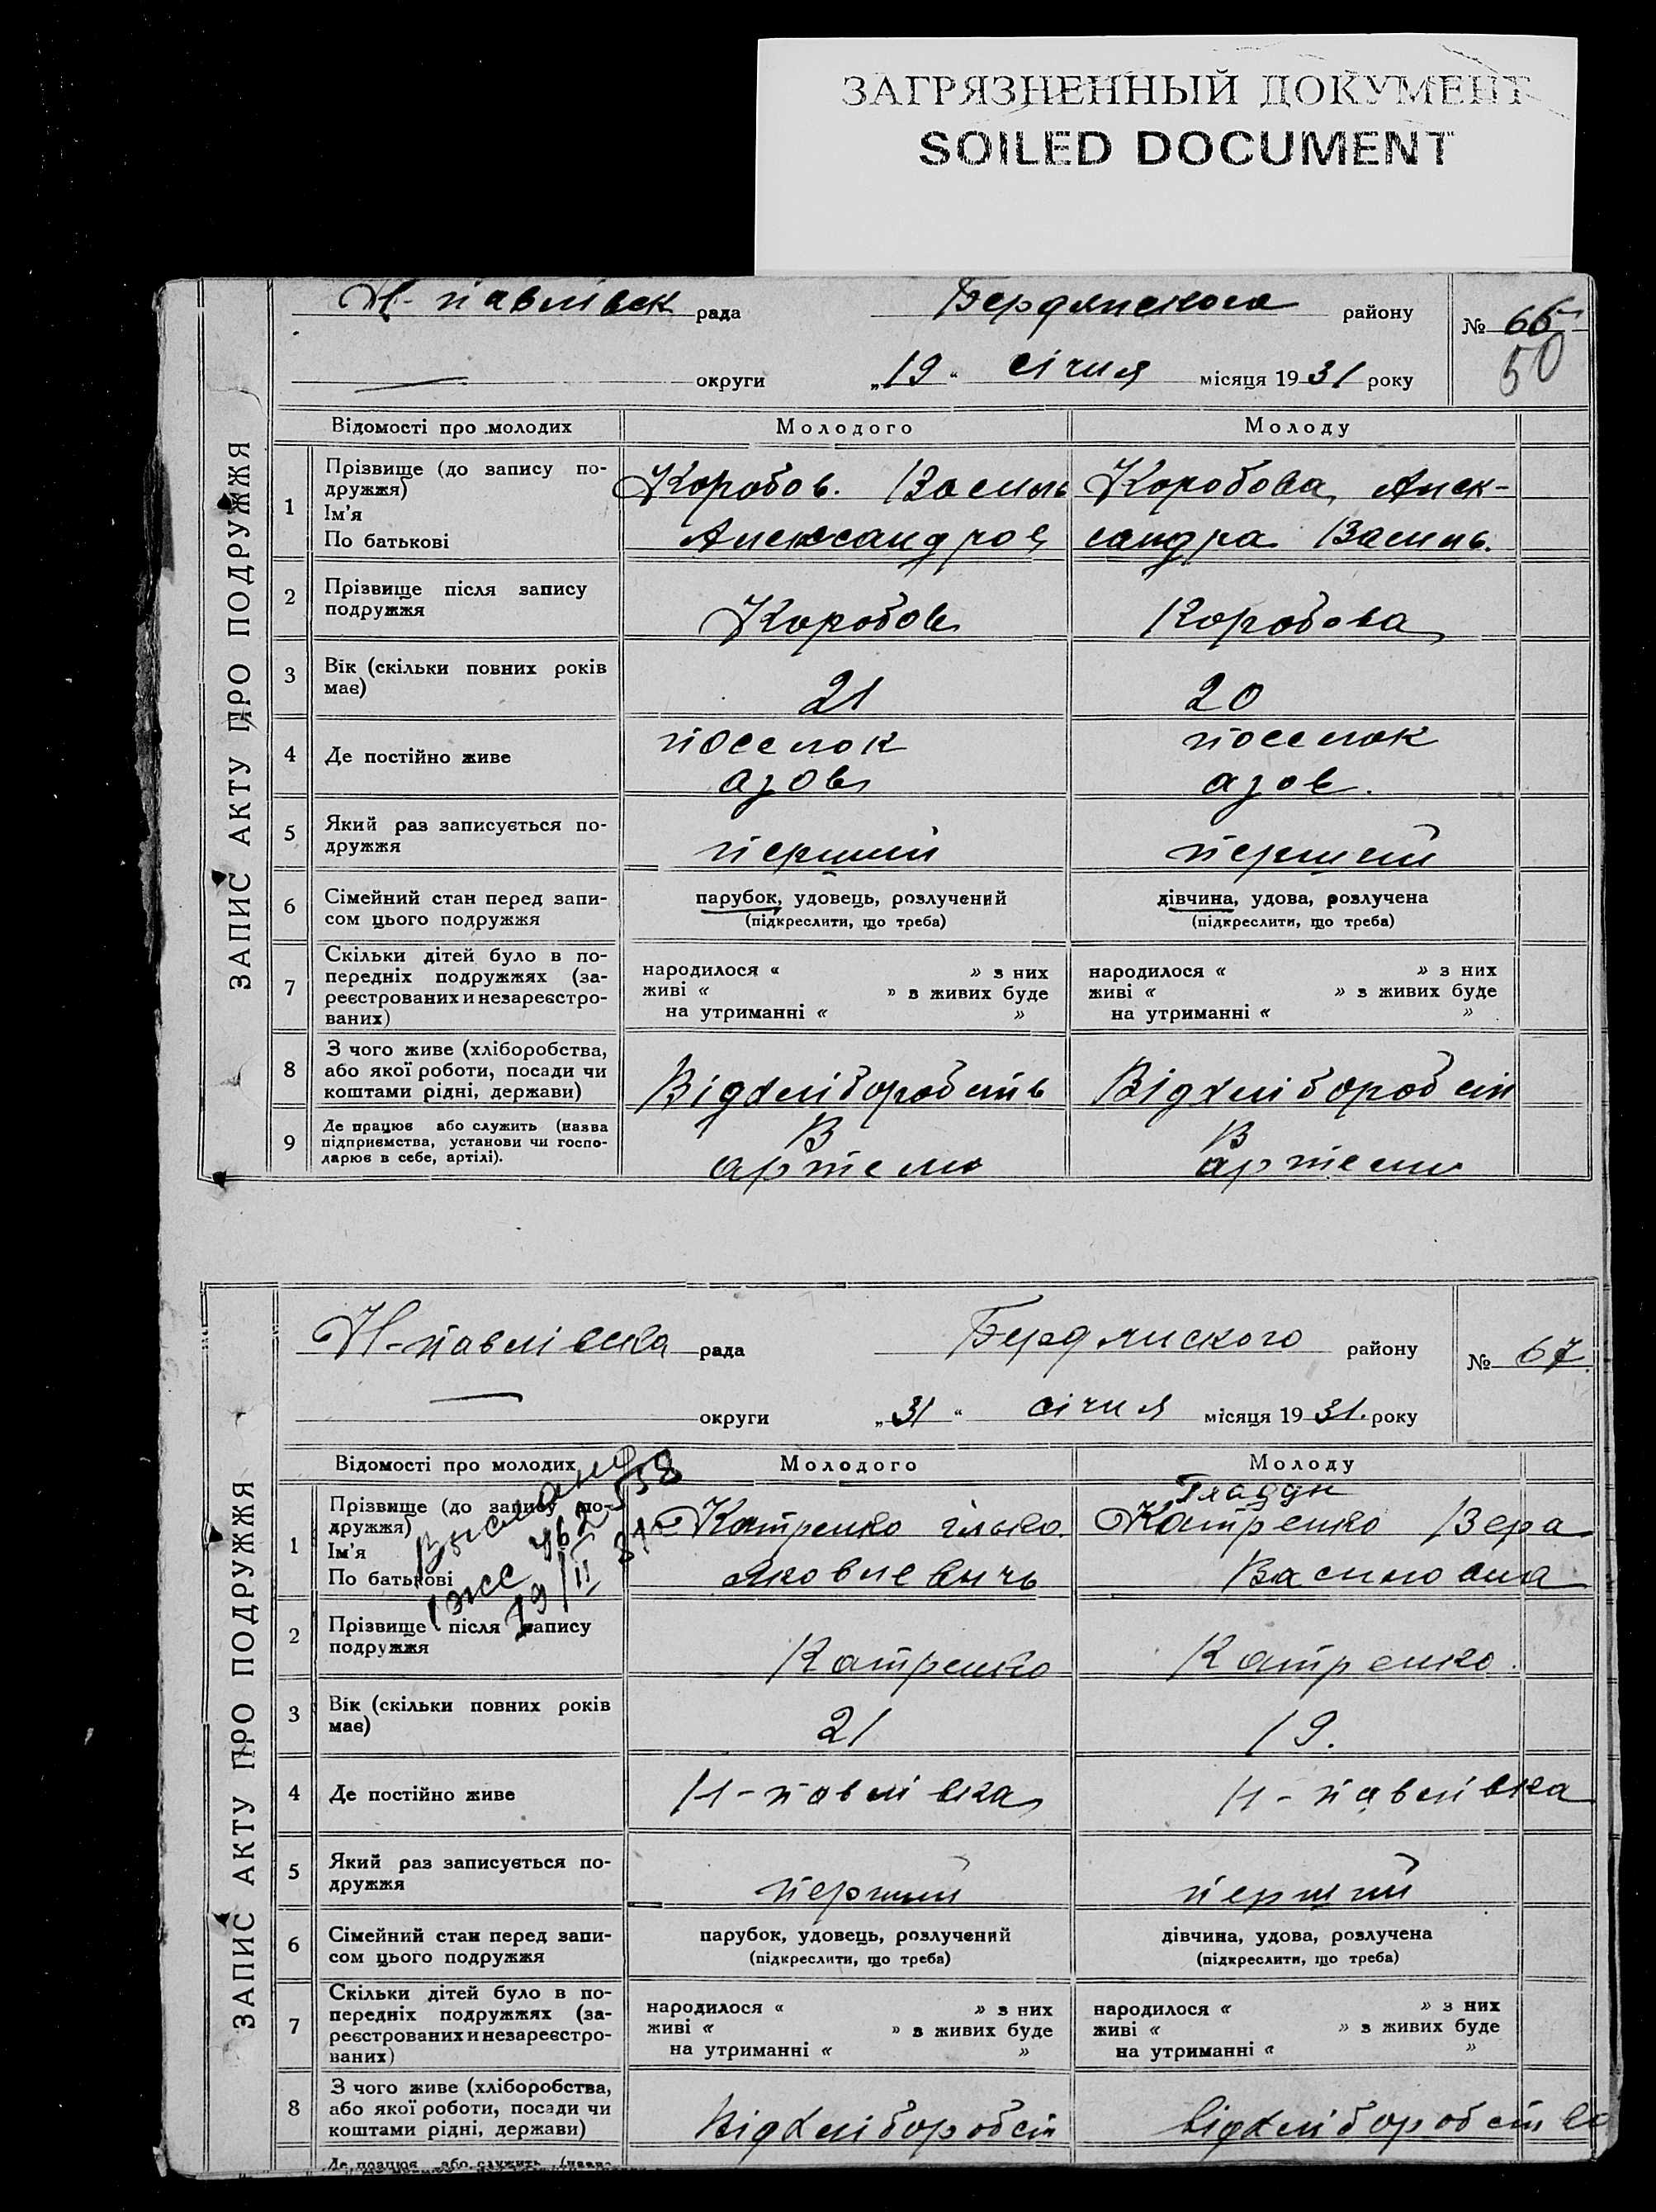 ЗАГРЯЗНЕННЫЙ ДОКУМЕНТ
SOILED DOCUMENT
ЗАПИС АКТУ ПРО ПОДРУЖЖЯ
Н-павлівск рада Бердянского району № 66
50
округи „19“ січня місяця 1931 року
Відомості про молодих Молодого Молоду
1 Прізвище (до запису по-
дружжя)
Ім'я
По батькові
Коробов. Василь
Александров
Коробова, Алек-
сандра Василь.
2 Прізвище після запису
подружжя
Коробов Коробова
3 Вік (скільки повних років
має)
21 20
4 Де постійно живе
поселок
азов
поселок
азов.
5 Який раз записується по-
дружжя
перший перший
6 Сімейний стан перед запи-
сом цього подружжя
парубок, удовець, розлучений
(підкреслити, що треба)
дівчина, удова, розлучена
(підкреслити, що треба)
7 Скільки дітей було в по-
передніх подружжях (за-
реєстрованих и незареєстро-
ваних)
народилося « » з них
живі « » з живих буде
на утриманні « »
народилося « » з них
живі « » з живих буде
на утриманні « »
8 З чого живе (хліборобства,
або якої роботи, посади чи
коштами рідні, держави)
Від хліборобств Від хліборобст
9 Де працює або служить (назва
підприємства, установи чи госпо-
дарює в себе, артілі).
В
артелі
В
артелі
ЗАПИС АКТУ ПРО ПОДРУЖЖЯ
Н-павлівска рада Бердянского району № 67
округи „31“ січня місяця 1931. року
Відомості про молодих Молодого Молоду
1 Прізвище (до запису по-
дружжя)
Ім'я
По батькові
462558
19/II 31
Катренко ілько
Яковлевичь
Гладун
Катренко Вера
Василовна
2 Прізвище після запису
подружжя
Катренко Катренко.
3 Вік (скільки повних років
має)
21 19.
4 Де постійно живе
Н-павлівка Н-павлівка
5 Який раз записується по-
дружжя
перший перший
6 Сімейний стан перед запи-
сом цього подружжя
парубок, удовець, розлучений
(підкреслити, що треба)
дівчина, удова, розлучена
(підкреслити, що треба)
7 Скільки дітей було в по-
передніх подружжях (за-
реєстрованих и незареєстро-
ваних)
народилося « » з них
живі « » з живих буде
на утриманні « »
народилося « » з них
живі « » з живих буде
на утриманні « »
8 З чого живе (хліборобства,
або якої роботи, посади чи
коштами рідні, держави)
Від хліборобст від хліборобство
Де працює або служить (назва